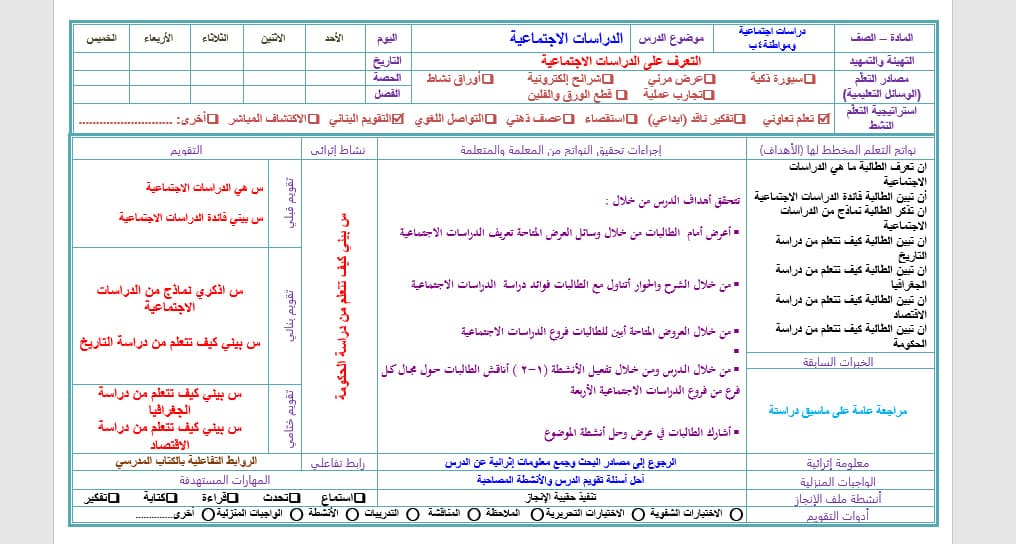 المادة – الصف
دراسات اجتماعية ومواطنة٤ب
موضوع الدرس
الدراسات الاجتماعية
اليوم
الأحد
الاثنين
الثلاثاء
الأربعاء
الخميس
التهيئة والتمهيد
التعرف على الدراسات الاجتماعية
التاريخ
مصادر التعلّم
(الوسائل التعليمية)
سبورة ذكية
عرض مرئي
شرائح إلكترونية
أوراق نشاط
الحصة
تجارب عملية
قطع الورق والفلين
الفصل
استراتيجية التعلّم
النشط
تعلم تعاوني
تفكير ناقد (ابداعي)
استقصاء
عصف ذهني
التواصل اللغوي
التقويم البنائي
الاكتشاف المباشر
أخرى: ........................
نواتج التعلم المخطط لها (الأهداف)
إجراءات تحقيق النواتج من المعلمة والمتعلمة
نشاط إثرائي
التقويم
ان تعرف الطالبة ما هي الدراسات
الاجتماعية
أن تبين الطالبة فائدة الدراسات الاجتماعية
ان تذكر الطالبة نماذج من الدراسات
الاجتماعية
ان تبين الطالبة كيف تتعلم من دراسة
التاريخ
ان تبين الطالبة كيف تتعلم من دراسة
الجغرافيا
ان تبين الطالبة كيف تتعلم من دراسة
الاقتصاد
ان تبين الطالبة كيف تتعلم من دراسة
الحكومة
الخبرات السابقة
مراجعة عامة على ماسبق دراستة
تتحقق أهداف الدرس من خلال :
▪ أعرض أمام الطالبات من خلال وسائل العرض المتاحة تعريف الدراسات الاجتماعية
▪ من خلال الشرح والحوار أتناول مع الطالبات فوائد دراسة الدراسات الاجتماعية
▪ من خلال العروض المتاحة أبين للطالبات فروع الدراسات الاجتماعية
▪
▪ من خلال الدرس ومن خلال تفعيل الأنشطة (١-٢ ) أناقش الطالبات حول مجال كل
فرع من فروع الدراسات الاجتماعية الأربعة
▪ أشارك الطالبات في عرض وحل أنشطة الموضوع
س بيني كيف تتعلم من دراسة الحكومة
تقويم قبلي
س هي الدراسات الاجتماعية
س بيني فائدة الدراسات الاجتماعية
تقويم بنائي
س اذكري نماذج من الدراسات
الاجتماعية
س بيني كيف تتعلم من دراسة التاريخ
تقويم ختامي
س بيني كيف تتعلم من دراسة
الجغرافيا
س بيني كيف تتعلم من دراسة
الاقتصاد
معلومة إثرائية
الرجوع إلى مصادر البحث وجمع معلومات إثرائية عن الدرس
رابط تفاعلي
الروابط التفاعلية بالكتاب المدرسي
الواجبات المنزلية
أحل أسئلة تقويم الدرس والأنشطة المصاحبة
المهارات المستهدفة
أنشطة ملف الإنجاز
تنفيذ حقيبة الإنجاز
استماع
تحدث
قراءة
كتابة
تفكير
أدوات التقويم
الاختبارات الشفوية
الاختبارات التحريرية
الملاحظة
المناقشة
التدريبات
الأنشطة
الواجبات المنزلية
أخرى..............